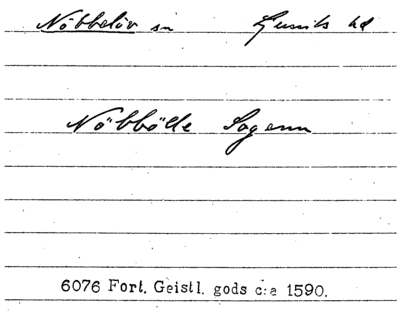 Nöbbelöv sn Gussils hd
Nöbbölle Sogenn
6076 Fort. Geistl. gods c:a 1590.